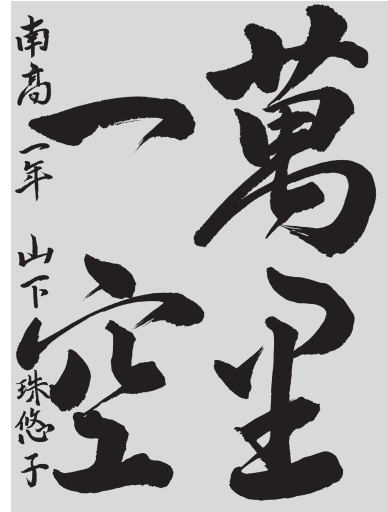 萬里
一空
南高一年 山下珠悠子